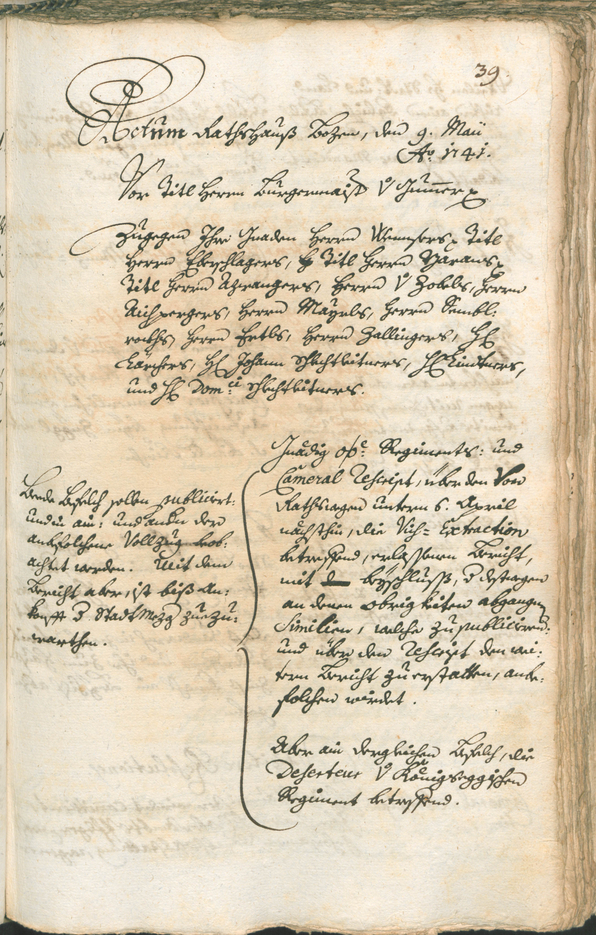 39
Actum Rathshauß Bozen, den 9. Maii
Aõ. 1741.
Vor Titl Herrn Burgermaist. V Gumer
Zugegen Ihro Gnaden Herrn Titl
Herrn Eberschlagers, Titl Herrn
Titl Herrn Azwangers, Herrn V Zobels, Herrn
Aichpergers, Herrn Mayrls, Herrn Sembl:
roths, Herrn Ertls, Herrn Zallingers, H:
Karchers, H: Johann Schlechtleitners, H: Lindners,
und H: Dom:ci Schlechtleitners.
Gnädig obr. Regiments: und
Cameral Rescript, über den von
Rathswegen untern 6. April
nächsthin, die Vich= Extraction
betreffend, erlassnen Bericht,
mit beyschluss, 3 destwegen
an denen obrigkeiten abgangen
Similien, welche zu publiciren:
und über den Rescript den wei:
tern Bericht zu erstatten, anbe:
folchen wirdet.
Beede Befelch sollen publiciert:
und in ain: und andern der
anbefolchene Vollzug beob:
achtet werden. Mit dem
Bericht aber, ist biß An:
kunfft Stadt zuezu:
warthen.
Aber ain dergleichen Befelch, die
Deserteur V Königseggischen
Regiment betreffend.